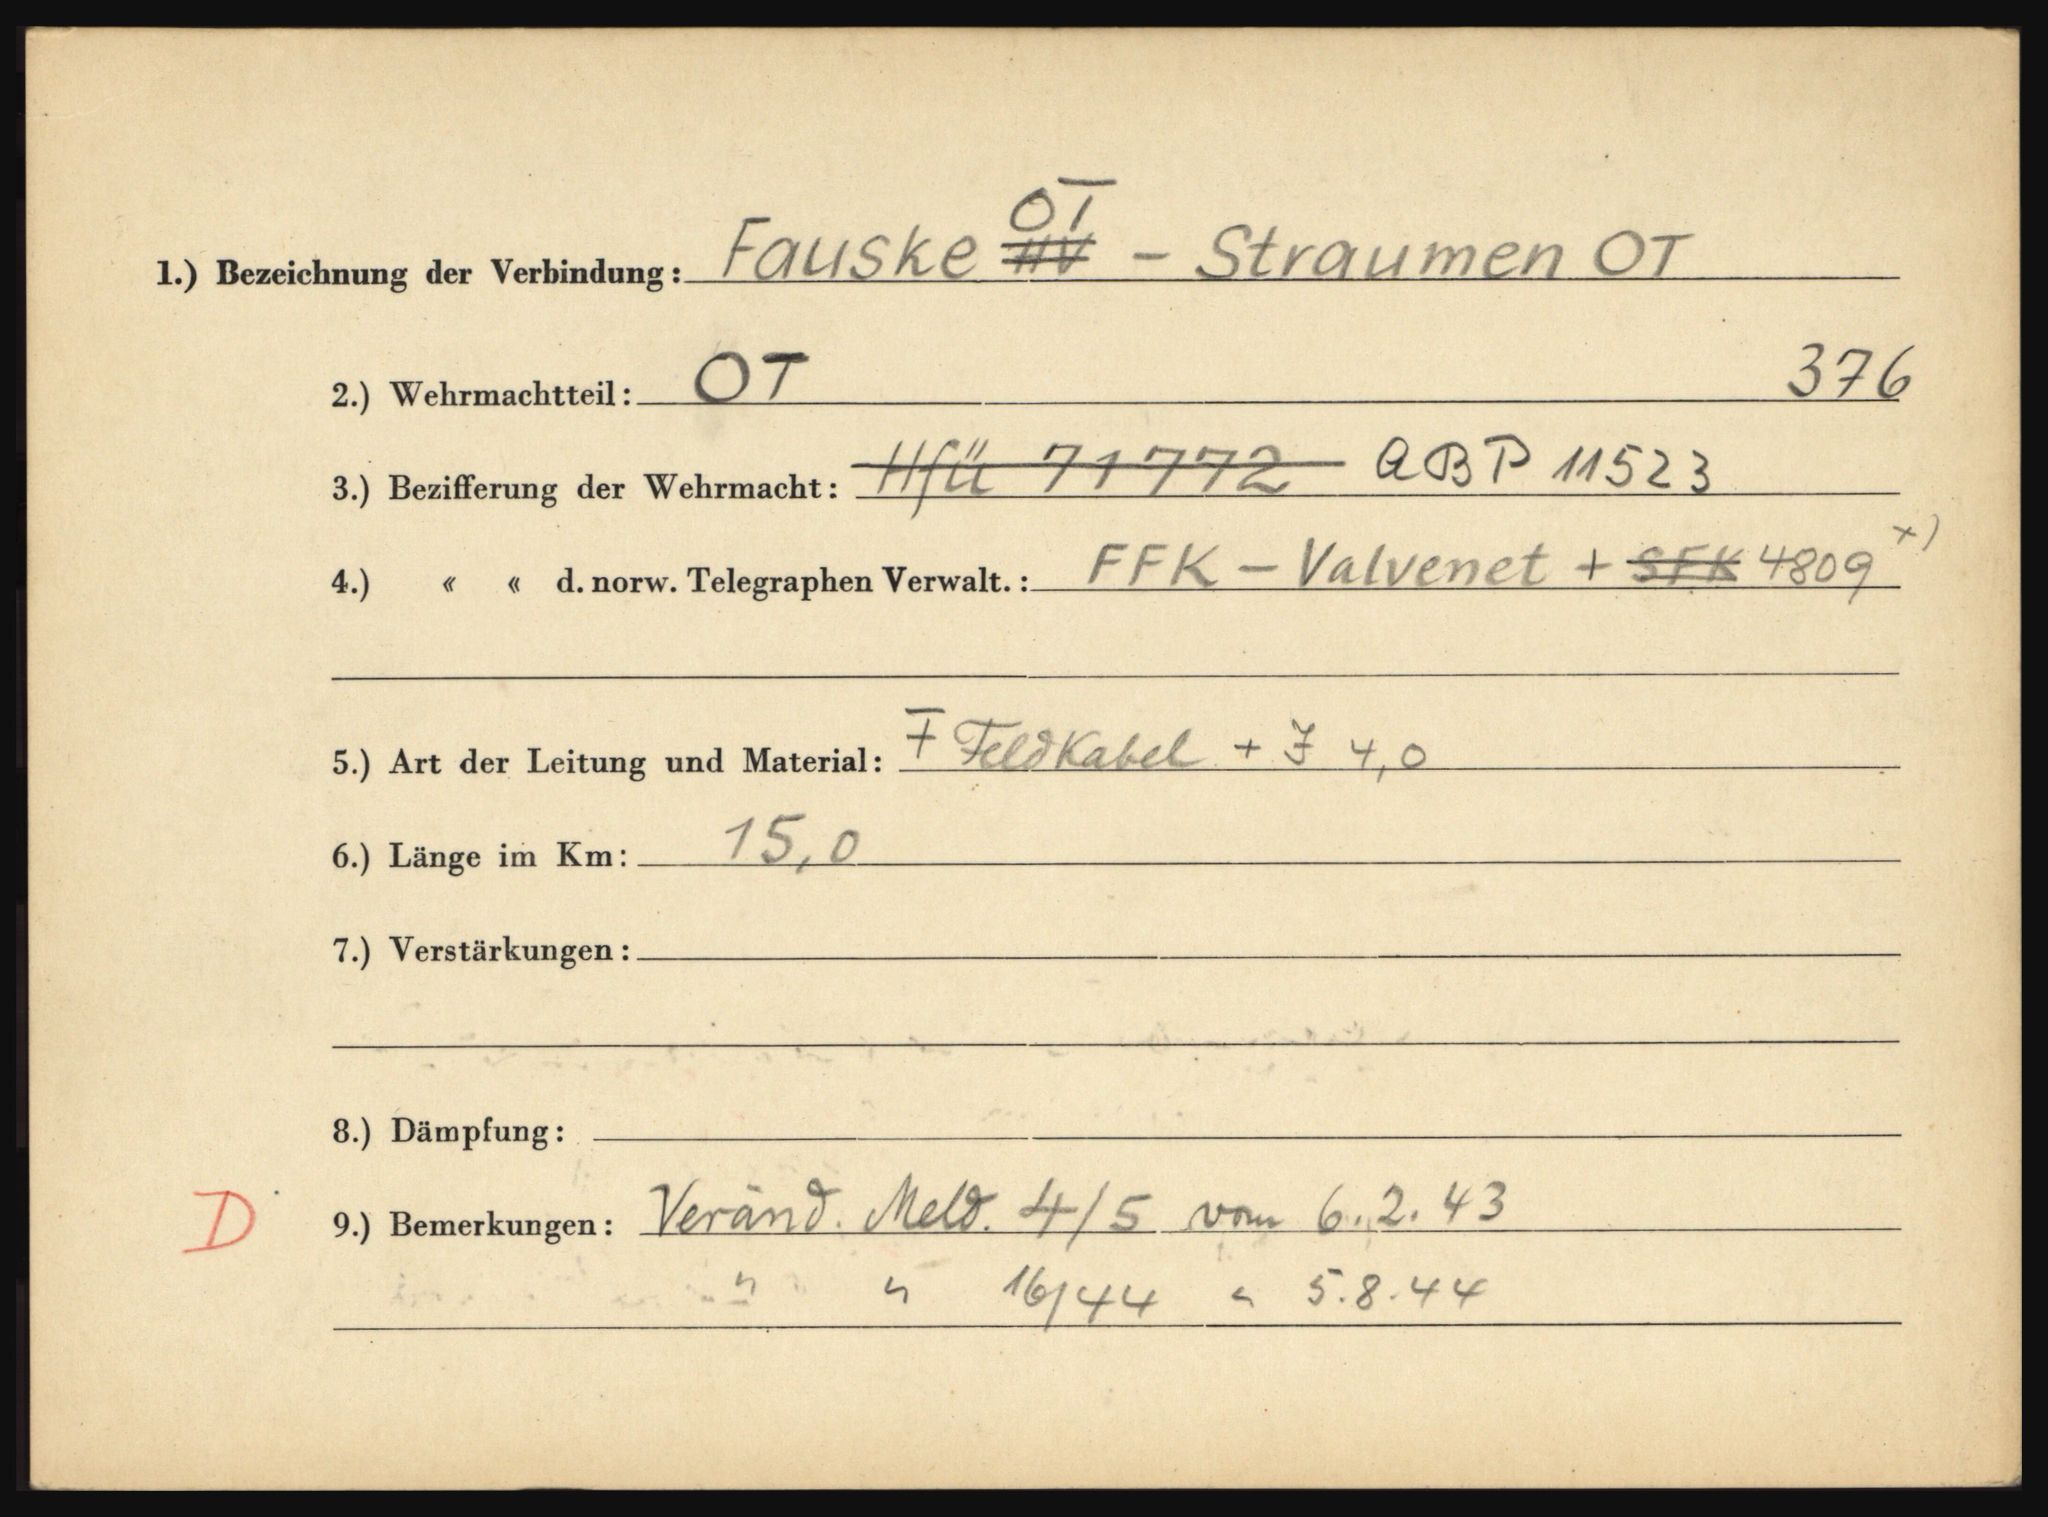 1.) Bezeichnung der Verbindung: Fauske HV OT – Straumen OT
2.) Wehrmachtteil: OT 376
3.) Bezifferung der Wehrmacht: Hfü 71772 ABP 11523
4.) « « d. norw. Telegraphen Verwalt.: FFK – Valvenet + SFK 4809 x)
5.) Art der Leitung und Material: Feldkabel + 4,0
6.) Länge im Km: 15,0
7.) Verstärkungen:
8.) Dämpfung:
D 9.) Bemerkungen: Veränd. Meld. 4/5 vom 6.2.43
" " 16/44 " 5.8.44